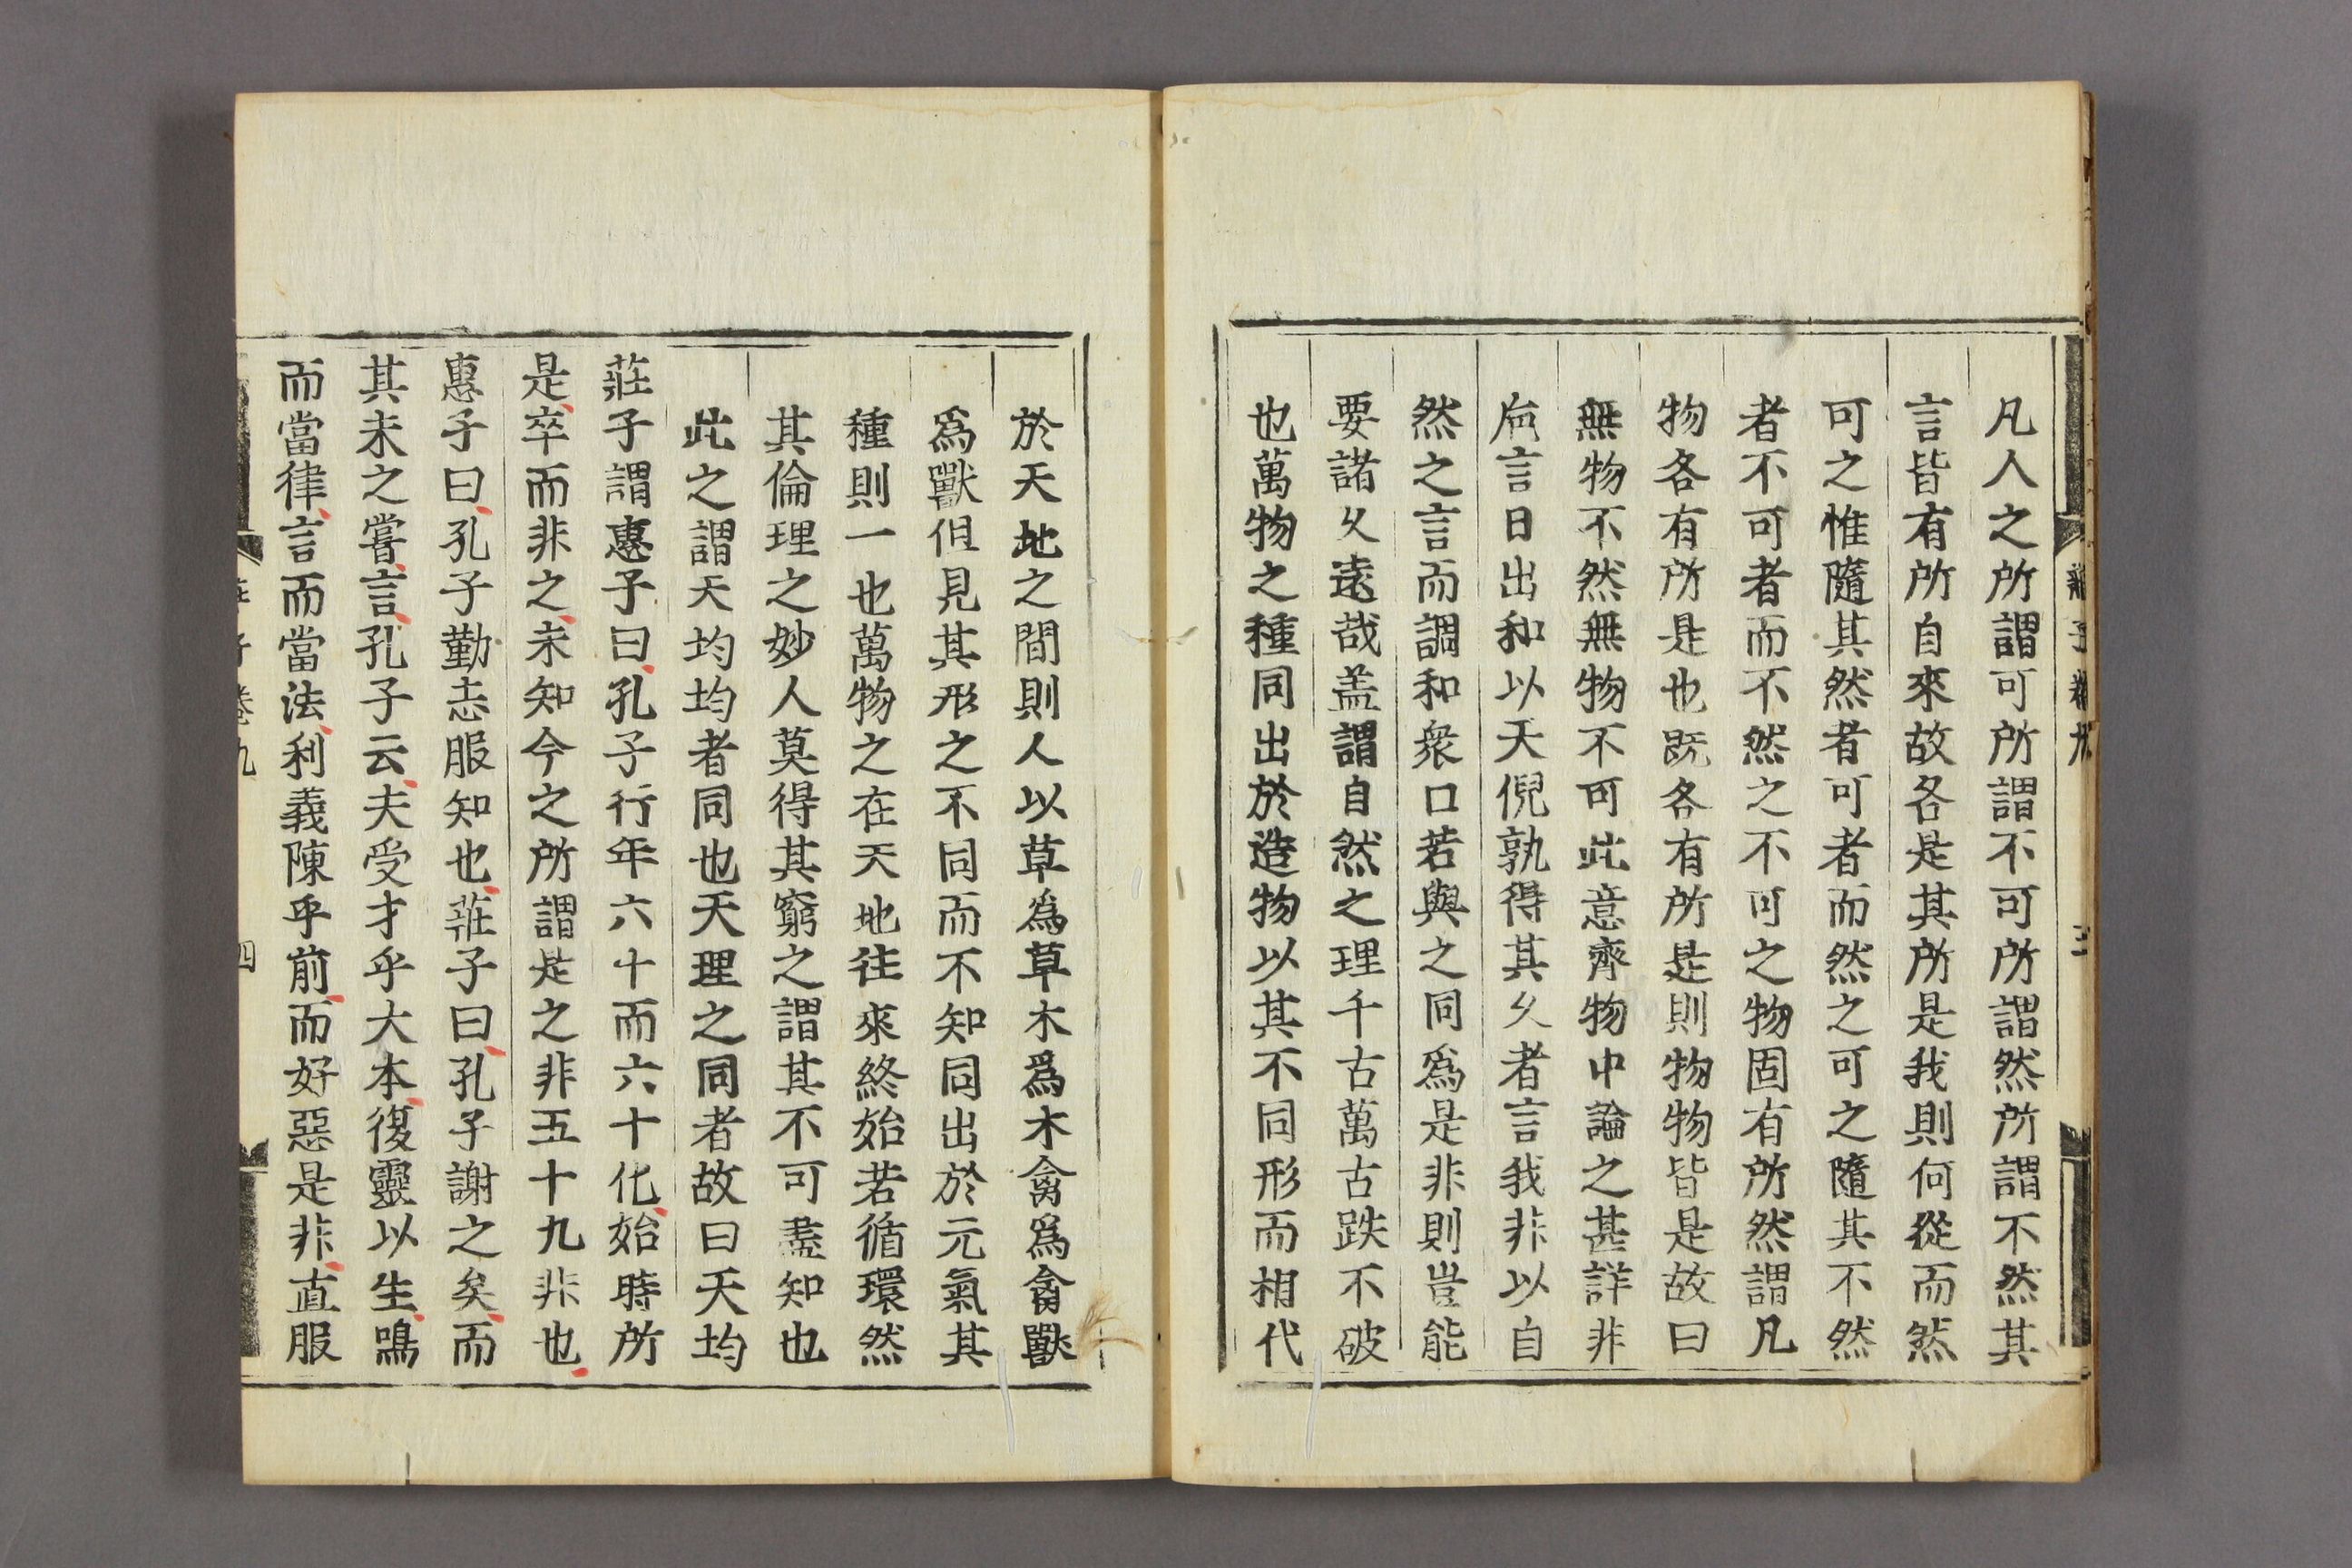 莊子卷九 三
凡人之所謂可所謂不可所謂然所謂不然其
言皆有所自來故各是其所是我則何從而然
可之惟隨其然者可者而然之可之隨其不然
者不可者而不然之不可之物固有所然謂凡
物各有所是也旣各有所是則物物皆是故曰
無物不然無物不可此意齊物中論之甚詳非
巵言日出和以天倪孰得其久者言我非以自
然之言而調和衆口若與之同爲是非則豈能
要諸久遠哉盖謂自然之理千古萬古跌不破
也萬物之種同出於造物以其不同形而相代
於天地之間則人以草爲草木爲木禽爲禽獸
爲獸但見其形之不同而不知同出於元氣其
種則一也萬物之在天地往來終始若循環然
其倫理之妙人莫得其窮之謂其不可盡知也
此之謂天均均者同也天理之同者故曰天均
莊子謂惠子曰孔子行年六十而六十化始時所
是卒而非之未知今之所謂是之非五十九非也
惠子曰孔子勤志服知也莊子曰孔子謝之矣而
其未之嘗言孔子云夫受才乎大本復靈以生鳴
而當律言而當法利義陳乎前而好惡是非直服
莊子卷九 四